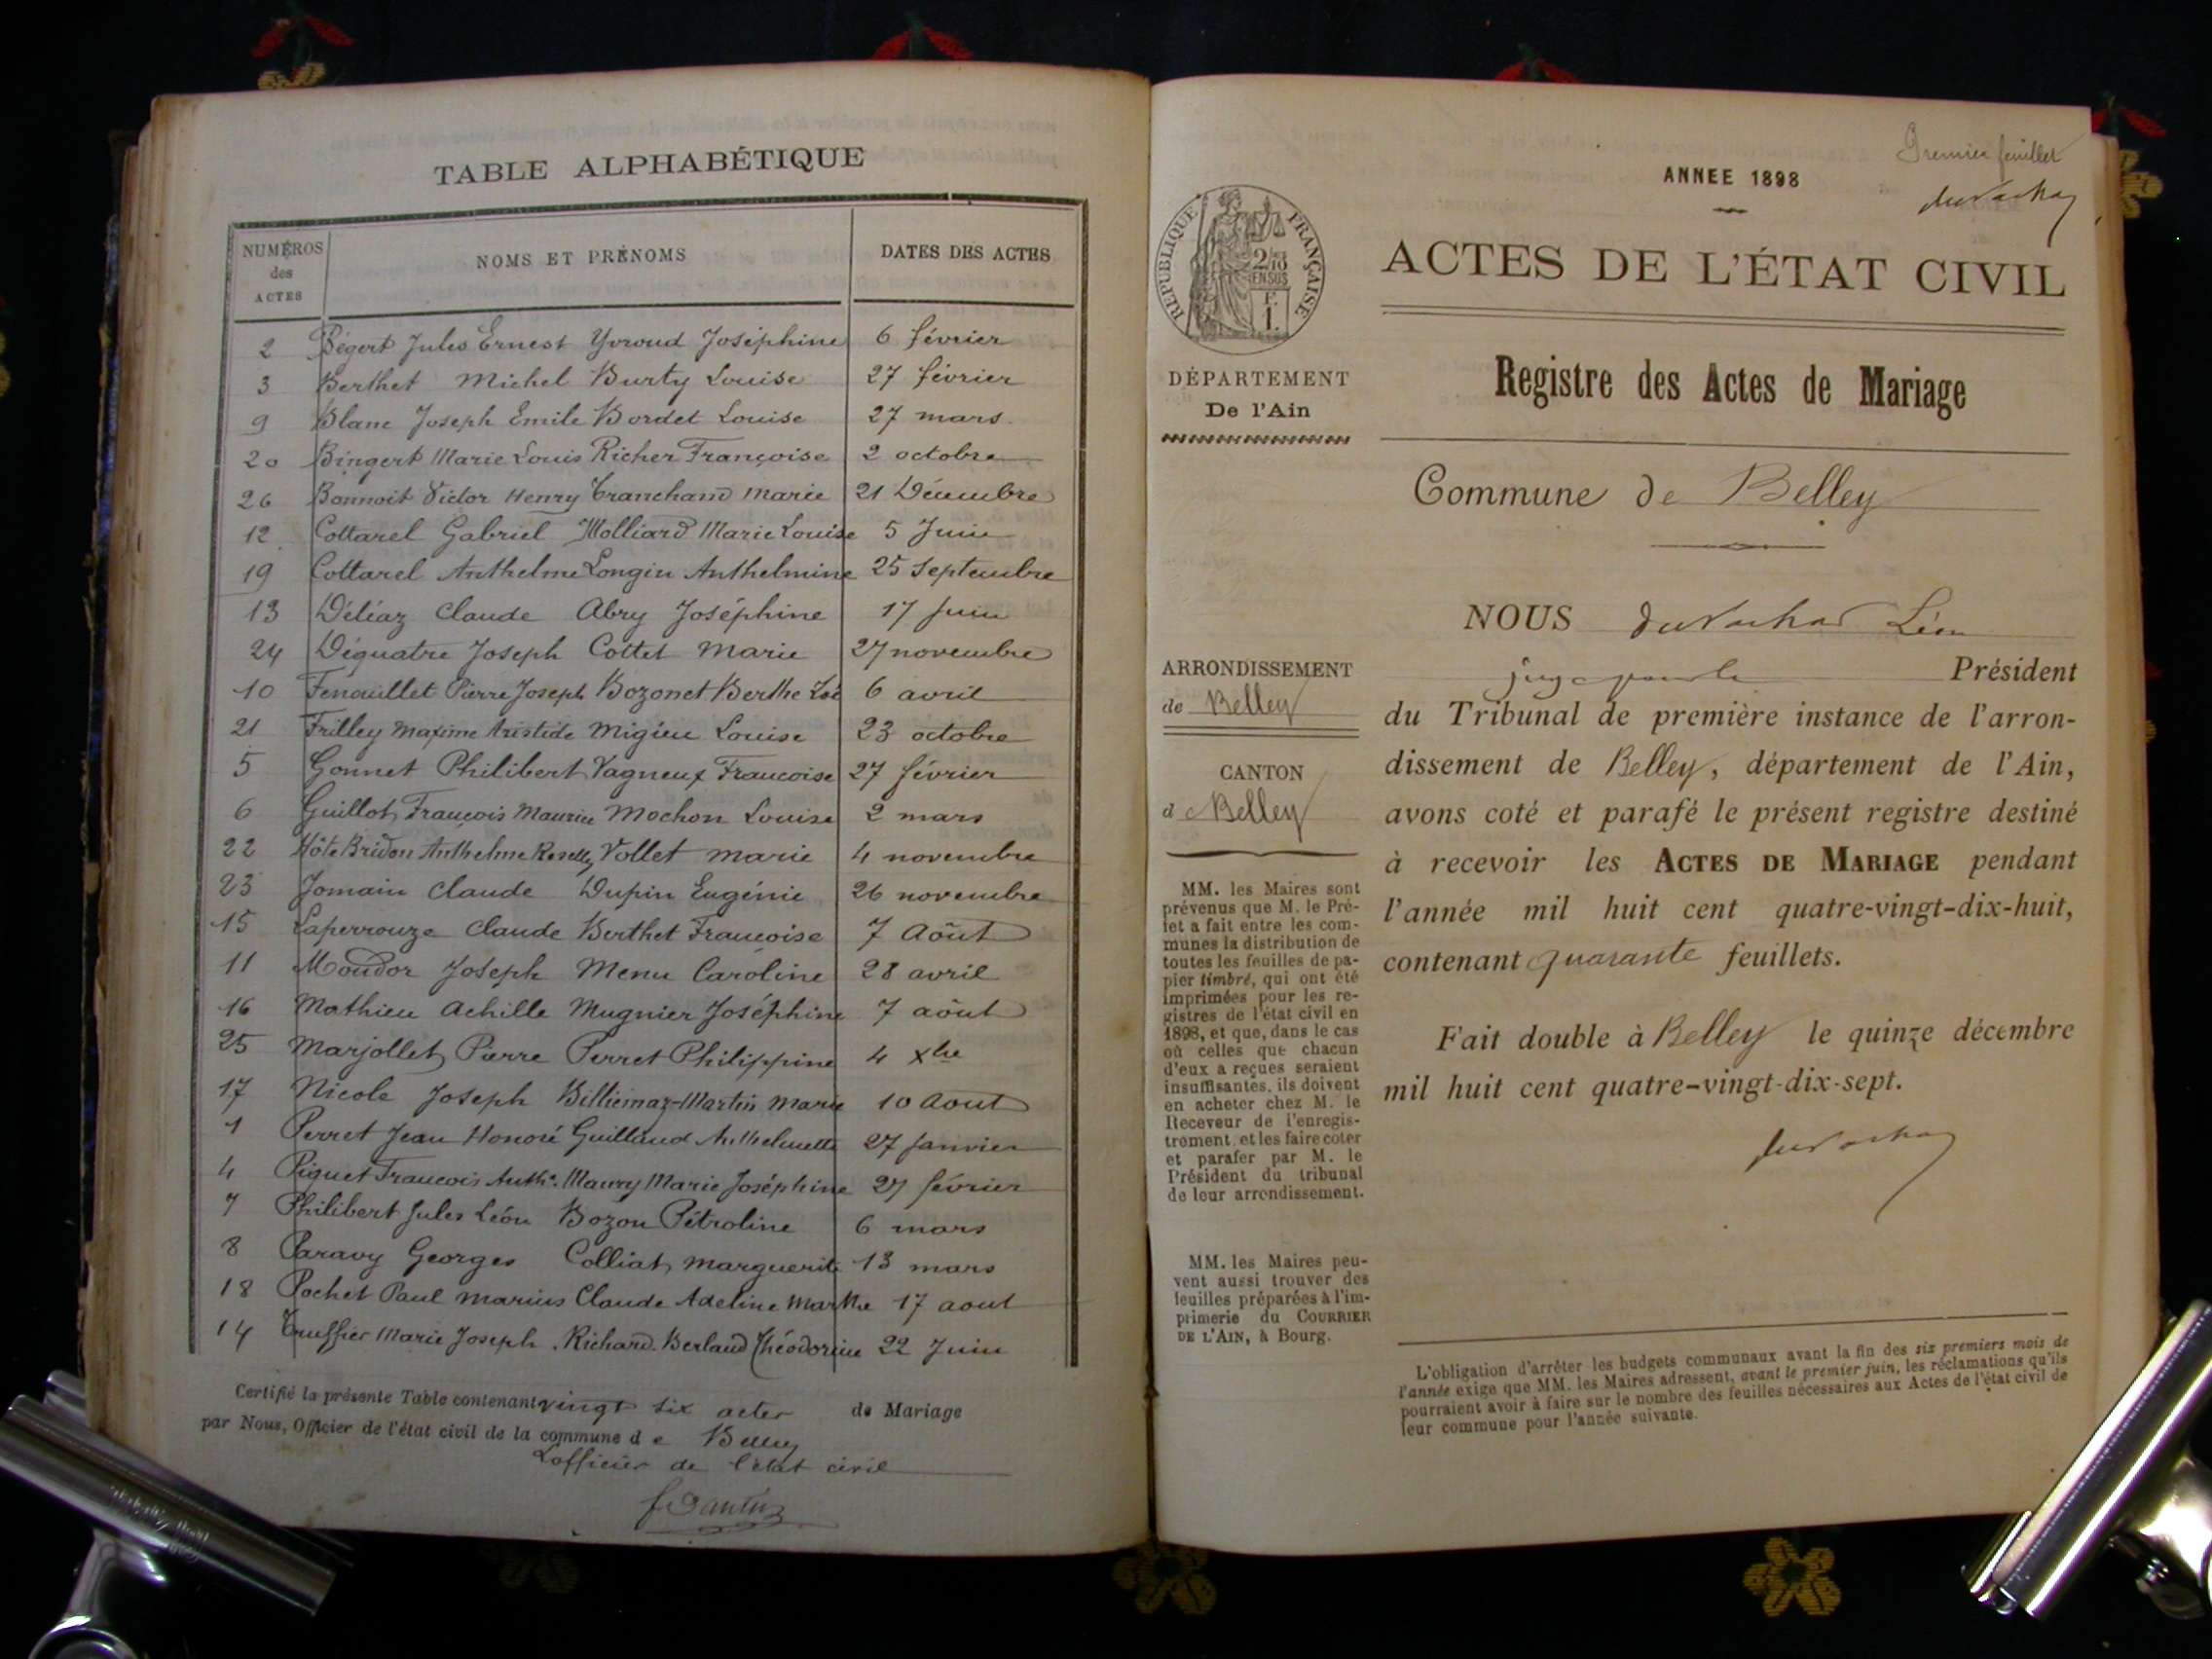 TABLE ALPHABÉTIQUE
NUMÉROS des ACTES
NOMS ET PRÉNOMS
DATES DES ACTES
2 Bégert Jules Ernest Yvroud Joséphine 6 février
3 Berthet Michel Burty Louise 27 février
9 Blanc Joseph Emile Bordet Louise 27 mars
20 Bingert Marie Louis Richer Françoise 2 octobre
26 Bonnoit Victor Henry Tranchand Marie 21 Décembre
12 Cottarel Gabriel Molliard Marie Louise 5 Juin
19 Cottarel Anthelme Longin Anthelmine 25 Septembre
13 Déliaz Claude Abry Joséphine 17 Juin
24 Déquatre Joseph Cottet Marie 27 novembre
10 Fenouillet Pierre Joseph Bozonet Berthe 6 avril
21 Frilley Maxime Aristide Migieu Louise 23 octobre
5 Gonnet Philibert Vagneux Francoise 27 février
6 Guillot François Maurice Mochon Louise 2 mars
22 Hôte Bridon Anthelme Vollet Marie 4 novembre
23 Jomain Claude Dupin Eugénie 26 novembre
15 Laperrouze Claude Berthet Françoise 7 Août
11 Moudor Joseph Menu Caroline 28 avril
16 Mathieu Achille Mugnier Joséphine 7 août
25 Marjollet Pierre Perret Philippine 4 xbre
17 Nicole Joseph Billiemaz-Martin Marie 10 Aout
1 Perret Jean Honoré Guilland Anthelmette 27 Janvier
4 Piquet Francois Anthe. Maury Marie Joséphine 27 février
7 Philibert Jules Léon Bozon Pétroline 6 mars
8 Paravy Georges Colliat Marguerite 13 mars
18 Pochet Paul Marius Claude Adeline Marthe 17 aout
14 Truffier Marie Joseph Richard. Berland Théodorine 22 Juin
Certifié la présente Table contenant vingt six actes de Mariage
par Nous, Officier de l'état civil de la commune de Belley
L'officier de l'état civil
ANNEE 1898
Premier feuillet
RÉPUBLIQUE FRANÇAISE
2/10 EN SUS
F. 1.
ACTES DE L'ÉTAT CIVIL
Registre des Actes de Mariage
Commune de Belley
DÉPARTEMENT
De l'Ain
ARRONDISSEMENT
de Belley
CANTON
de Belley
MM. les Maires sont
prévenus que M. le Pré-
fet a fait entre les com-
munes la distribution de
toutes les feuilles de pa-
pier timbré, qui ont été
imprimées pour les re-
gistres de l'état civil en
1898, et que, dans le cas
où celles que chacun
d'eux a reçues seraient
insuffisantes, ils doivent
en acheter chez M. le
Receveur de l'enregis-
trement, et les faire coter
et parafer par M. le
Président du tribunal
de leur arrondissement.
MM. les Maires peu-
vent aussi trouver des
feuilles préparées à l'im-
primerie du COURRIER
DE L'AIN, à Bourg.
NOUS Duvachat Léon
Président
du Tribunal de première instance de l'arron-
dissement de Belley, département de l'Ain,
avons coté et parafé le présent registre destiné
à recevoir les ACTES DE MARIAGE pendant
l'année mil huit cent quatre-vingt-dix-huit,
contenant quarante feuillets.
Fait double à Belley le quinze décembre
mil huit cent quatre-vingt-dix-sept.
L'obligation d'arrêter les budgets communaux avant la fin des six premiers mois de
l'année exige que MM. les Maires adressent, avant le premier juin, les réclamations qu'ils
pourraient avoir à faire sur le nombre des feuilles nécessaires aux Actes de l'état civil de
leur commune pour l'année suivante.